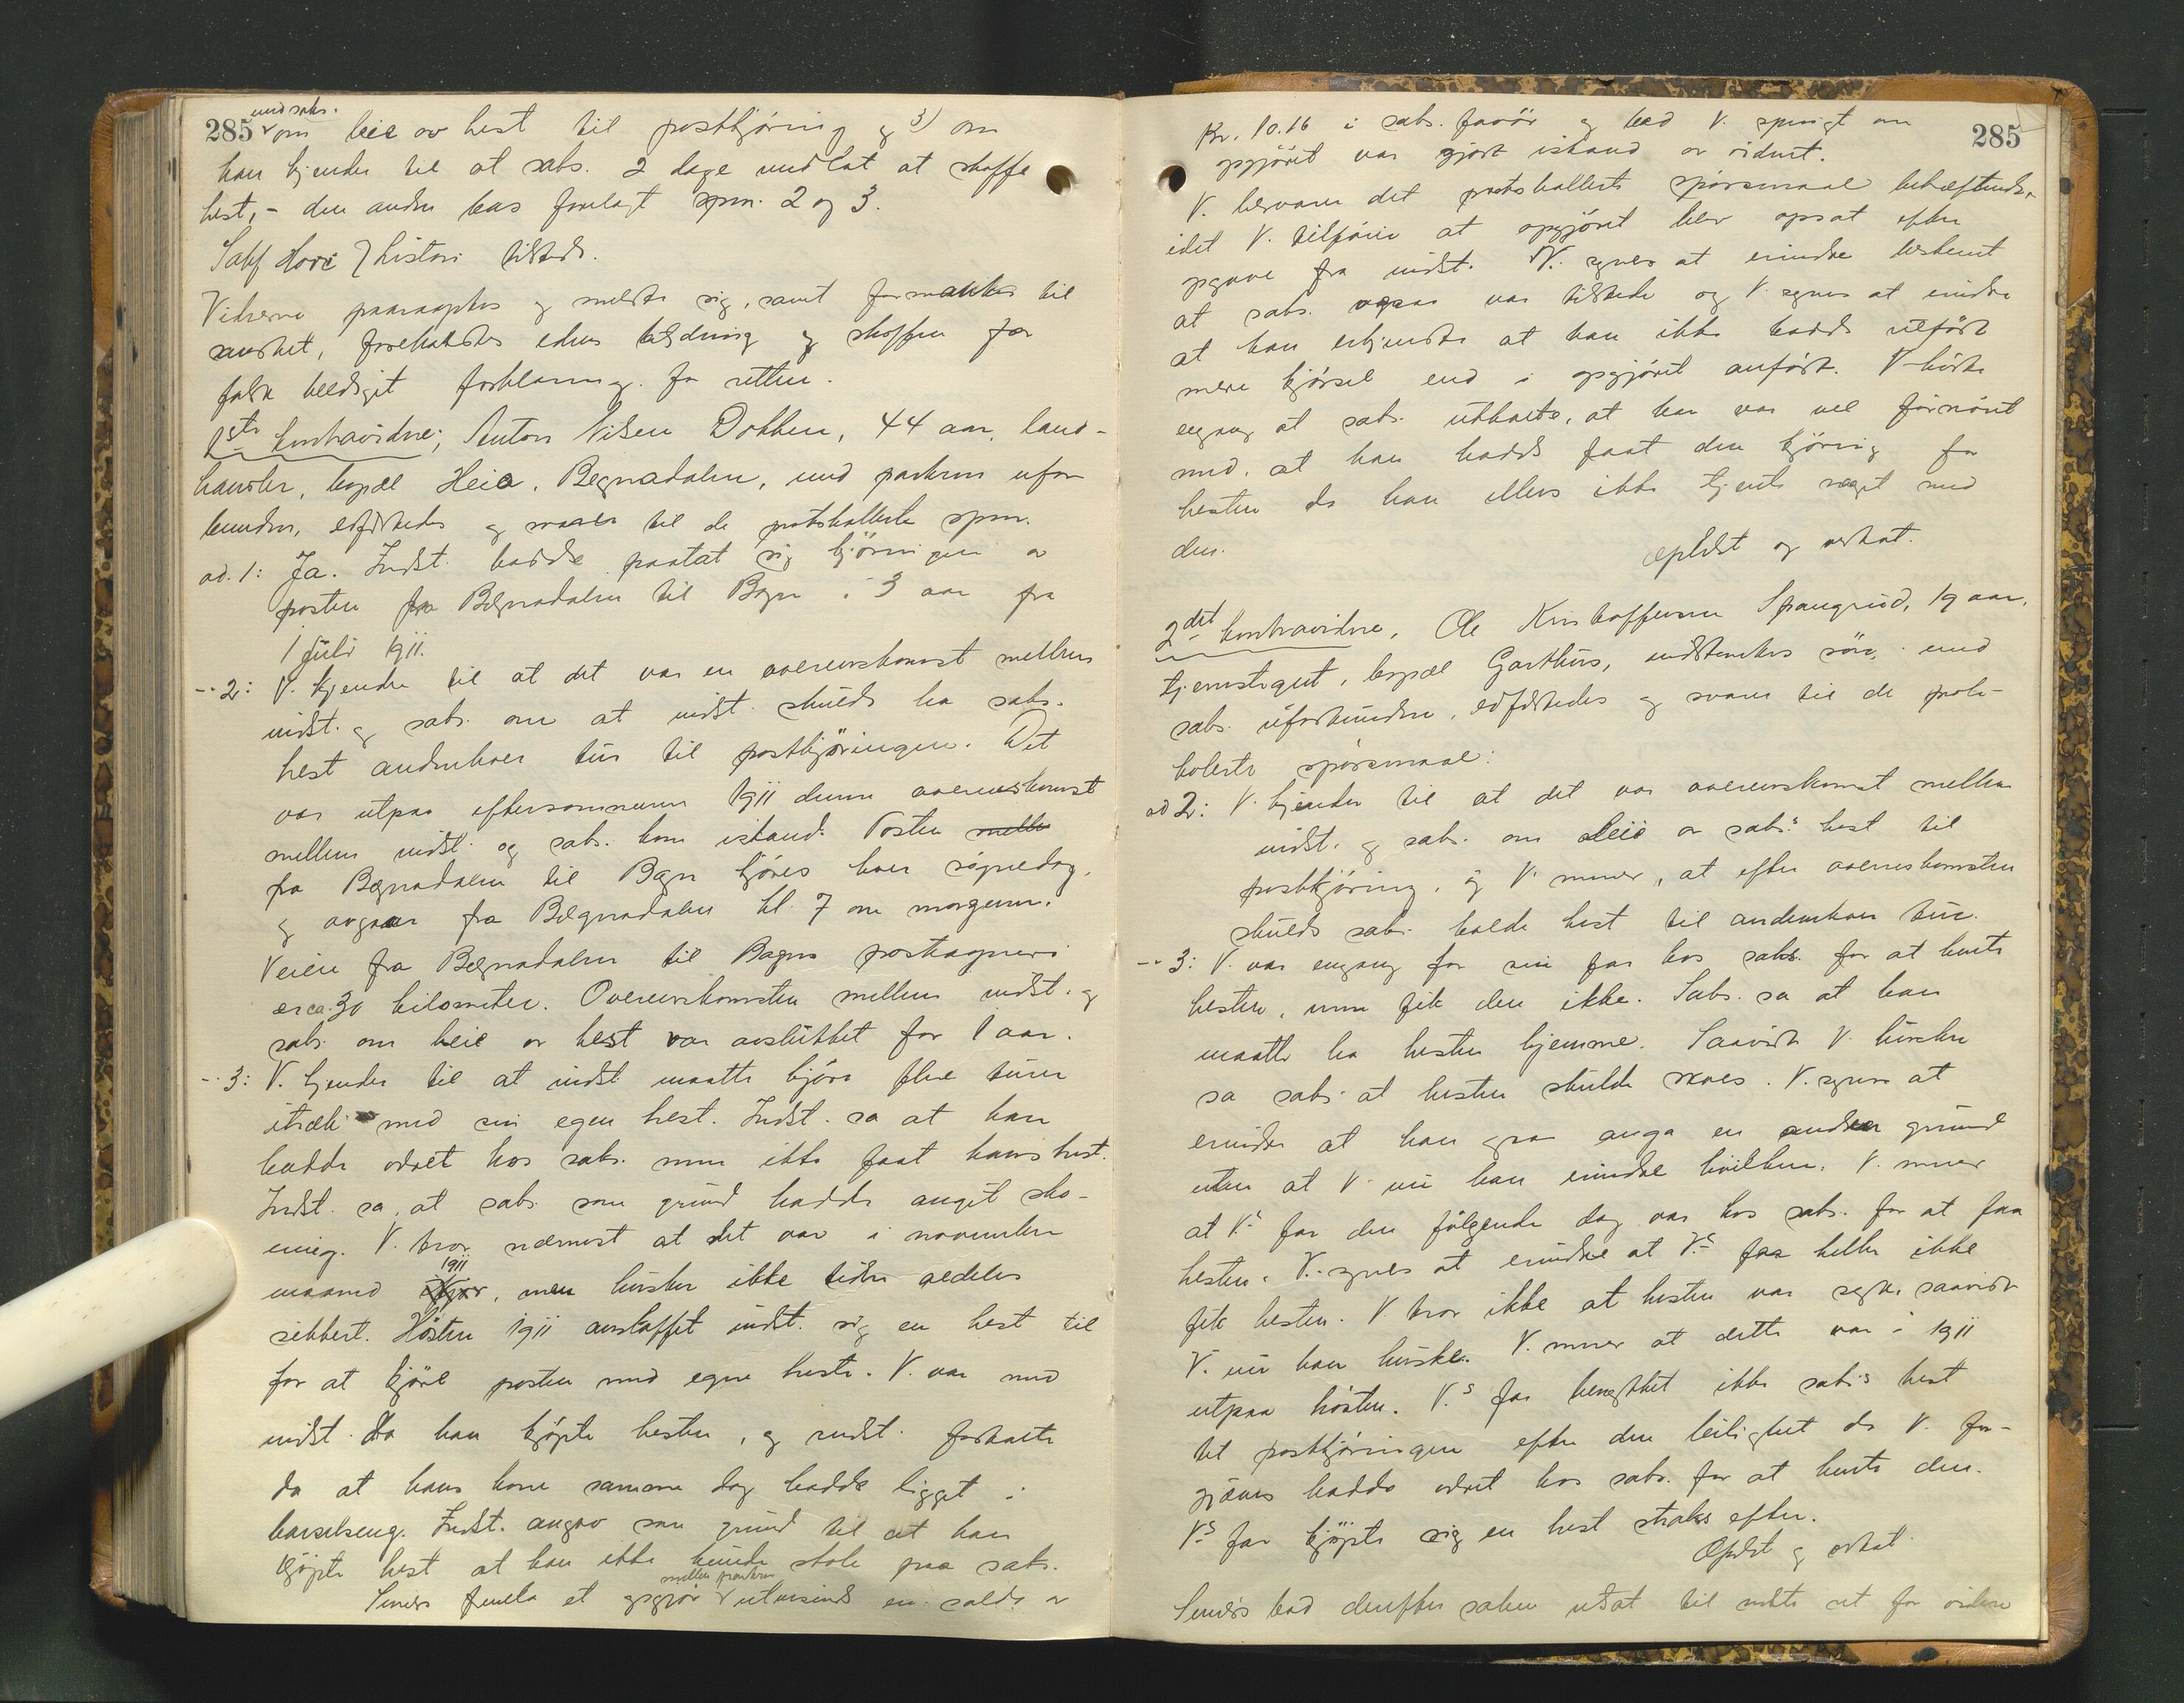 285 med saks.
om leie av hest til postkjøring og 3) om
han kjender til at saks. 2 dage undlot at skaffe
hest, - den anden bas forelagt spm. 2 og 3.
Sakf Hove tilstede.
Vidnerne paaroptes og meldte sig, samt formantes til
sandhet, foreholdtes edens betydning og straffen for
falsk beediget forklaring for retten.
1ste kontravidne; Anton Nilsen Dokken, 44 aar, land-
handler, bopæl Heia, Begnadalen, med parterne ufor
bunden, edfæstedes og svarer til de protokollerte spm.
ad. 1: Ja. Indst. hadde paatat sig kjøringen av
posten fra Begnadalen til Bagn i 3 aar fra
1 juli 1911.
-- 2: V. kjender til at det var en overenskomst mellem
indst. og saks. om at indst. skulde ha saks.
hest andenhver tur til postkjøringen. Det
var utpaa eftersommeren 1911 denne overenskomst
mellem indst. og saks. kom istand. Posten mellem
fra Begnadalen til Bagn kjøres hver søgnedag,
og avgaar fra Begnadalen kl. 7 om morgenen.
Veien fra Begnadalen til Bagns postaapneri
er ca. 30 kilometer. Overenskomsten mellem indst. og
saks. om leie av hest var avsluttet for 1 aar.
-- 3: V. kjender til at indst. maatte kjøre flere turer
itræk med sin egen hest. Indst. sa at han
hadde været hos saks. men ikke faat hans hest.
Indst. sa, at saks som grund hadde angit sko-
ening. V. tror nærmest at det var i november
maaned 1911, men husker ikke tiden aedeles
sikkert. Høsten 1911 anskaffet indst. sig en hest til
for at kjøre posten med egne heste. V. var med
indst. da han kjøpte hesten, og indst. fortalte
da at hans kone samme dag hadde ligget i
barselseng. Indst. angav som grund til at han
kjøpte hest at han ikke kunde stole paa saks.
Senders fremla et opgjør mellem parterne utvisende en saldo av
285
Kr. 10.16 i saks. favør og bad V. spurgt om
opgjøret var gjort istand og ordnet.
V. besvarer det protokollerte spørsmaal bekræftende,
idet V. tilføier at opgjøret blev opsat efter
opgave fra indst. V. synes at erindre bestemt
at saks. ogsaa var tilstede og V. synes at erindre
at han erkjendte at han ikke hadde utført
mere kjørsel end i opgjøret anført. V hørte
engang at saks. uttalte, at han var vel fornøiet
med, at han hadde faat den kjøring for
hesten da han ellers ikke tjente noget med
den.
Oplæst og vedtat.
2det kontravidne, Ole Kristoffersen Spangrud, 19 aar,
tjenestegut, bopæl Garthus, indstevntes søn, med
saks. uforbunden, edfæstedes og svarer til de proto-
kolerte spørsmaal:
ad 2: V. kjender til at det var overenskomst mellem
indst. og saks. om leie av saks.s hest til
postkjøring, og V. mener, at efter overenskomsten
skulde saks. holde hest til andenhver tur.
-- 3: V. var engang for sin far hos saks. for at hente
hesten, men fik den ikke. Saks. sa at han
maatte ha hesten hjemme. Saavidt V. husker
sa saks. at hesten skulde skoes. V. synes at
erindre at han ogsaa anga en anden grund
uten at V. nu kan erindre hvilken. V. mener
at V.s far den følgende dag var hos saks. for at faa
hesten. V. synes at erindre at V.s far heller ikke
fik hesten. V tror ikke at hesten var syk, saavidt
V. nu kan huske. V. mener at dette var i 1911
utpaa høsten. V.s far benyttet ikke saks's hest
til postkjøringen efter den leilighet da V. for-
gjæves hadde været hos saks. for at hente den.
V.s far kjøpte sig en hest straks efter.
Oplæst og vedtat.
Senders bad derefter saken utsat til neste ret for videre